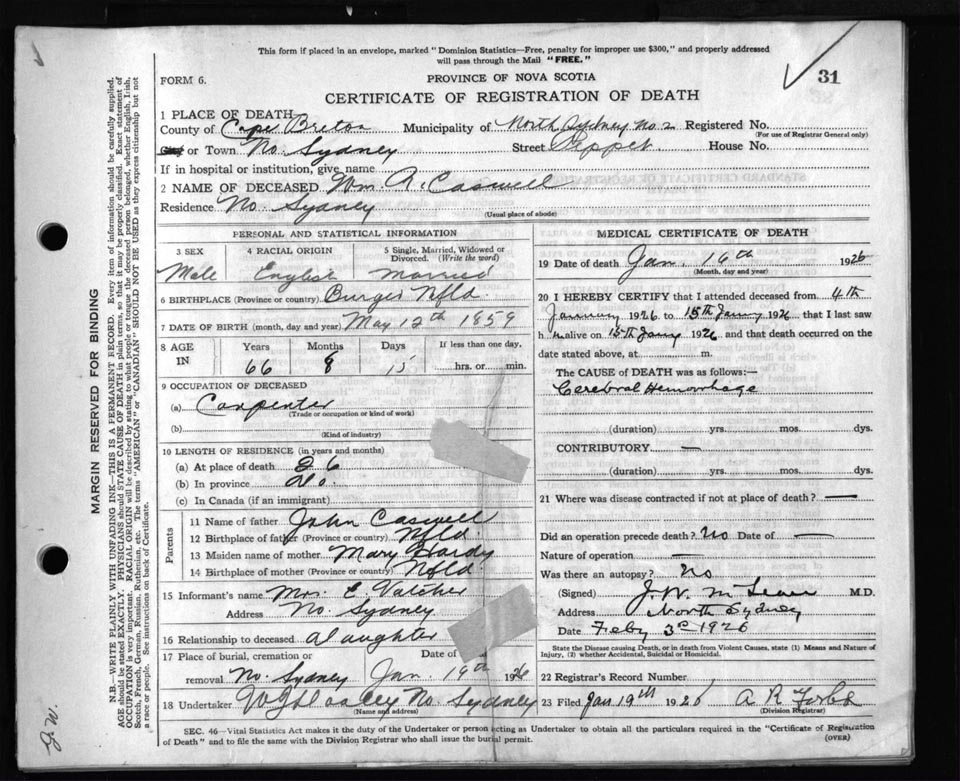 This form if placed in an envelope, marked "Dominion Statistics—Free, penalty for improper use $300," and properly addressed
will pass through the Mail "FREE."
FORM 6. PROVINCE OF NOVA SCOTIA 31
CERTIFICATE OF REGISTRATION OF DEATH
1 PLACE OF DEATH
County of Cape Breton Municipality of North Sydney No 2 Registered No.
(For use of Registrar General only)
City or Town No. Sydney Street Pepper House No.
If in hospital or institution, give name
2 NAME OF DECEASED Wm A. Caswell
Residence No Sydney
(Usual place of abode)
PERSONAL AND STATISTICAL INFORMATION
3 SEX 4 RACIAL ORIGIN 5 Single, Married, Widowed or
Divorced. (Write the word)
Male English Married
6 BIRTHPLACE (Province or country) Burgeo Nfld.
7 DATE OF BIRTH (month, day and year) May 12th 1859
8 AGE IN Years Months Days If less than one day,
66 8 hrs. or min.
9 OCCUPATION OF DECEASED
(a) Carpenter
(Trade or occupation or kind of work)
(b)
(Kind of industry)
10 LENGTH OF RESIDENCE (in years and months)
(a) At place of death 26
(b) In province Do.
(c) In Canada (if an immigrant)
Parents
11 Name of father John Caswell
12 Birthplace of father (Province or country) Nfld.
13 Maiden name of mother Mary Hardy
14 Birthplace of mother (Province or country) Nfld
15 Informant's name Mrs. E. Vatcher
Address No. Sydney
16 Relationship to deceased daughter
17 Place of burial, cremation or Date of
removal No. Sydney Jan. 19th 1926
18 Undertaker No Sydney
(Name and address)
MEDICAL CERTIFICATE OF DEATH
19 Date of death Jan. 16th 1926
(Month, day and year)
20 I HEREBY CERTIFY that I attended deceased from 4th
January 1926 to 15th Janry 1926, that I last saw
h m alive on 15th Janry 1926 and that death occurred on the
date stated above, at m.
The CAUSE OF DEATH was as follows:
Cerebral Hemorrhage
(duration) yrs. mos. dys.
CONTRIBUTORY —
(duration) yrs. mos. dys.
21 Where was disease contracted if not at place of death? —
Did an operation precede death? No Date of —
Nature of operation —
Was there an autopsy? No
(Signed) J. W. M. D.
Address North Sydney
Date Feby 3rd 1926
State the Disease Causing Death, or in death from Violent Causes, state (1) Means and Nature of
Injury, (2) whether Accidental, Suicidal or Homicidal.
22 Registrar's Record Number
23 Filed Jan 19th 1926 A R Forbes
(Division Registrar)
SEC. 46—Vital Statistics Act makes it the duty of the Undertaker or person acting as Undertaker to obtain all the particulars required in the "Certificate of Registration
of Death" and to file the same with the Division Registrar who shall issue the burial permit. (OVER)
MARGIN RESERVED FOR BINDING
N.B.—WRITE PLAINLY WITH UNFADING INK—THIS IS A PERMANENT RECORD. Every item of information should be carefully supplied.
AGE should be stated EXACTLY. PHYSICIANS should STATE CAUSE OF DEATH in plain terms, so that it may be properly classified. Exact statement of
OCCUPATION is very important. RACIAL ORIGIN will be described by stating to what people or tongue the deceased person belonged, whether English, Irish,
Scotch, French, German, Russian, Ruthenian, etc. The terms "AMERICAN" or "CANADIAN" SHOULD NOT BE USED as they express citizenship but not
a race or people. See instructions on back of Certificate.
J.W.